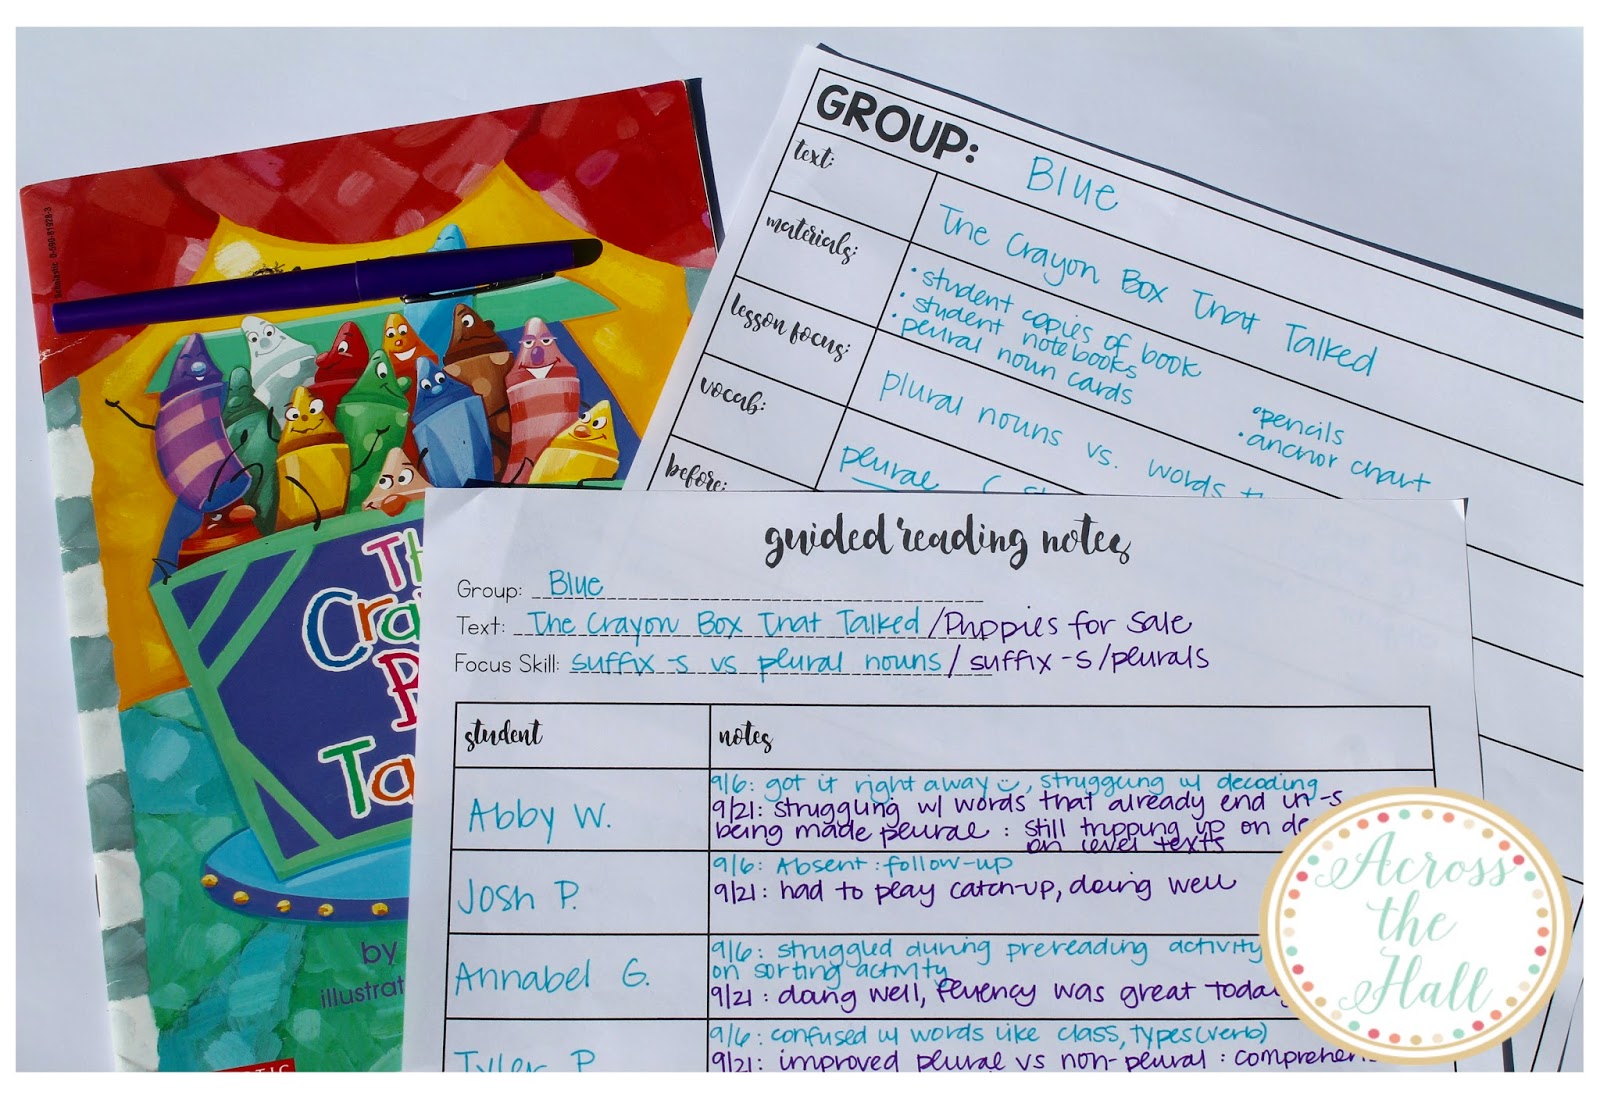 Scholastic 0-590-81928-3
The
Cra
B
Ta
by
illustrat
GROUP: Blue
text: The Crayon Box That Talked
materials: • student copies of book
• student notebooks
• plural noun cards
• pencils
• anchor chart
lesson focus: plural nouns vs. words
vocab: plural
before:
guided reading notes
Group: Blue
Text: The Crayon Box That Talked / Puppies for Sale
Focus Skill: suffix -s vs plural nouns / suffix -s / plurals
student notes
Abby W.
9/6: got it right away, struggling w/ decoding
9/21: struggling w/ words that already end in -s
being made plural : still tripping up on de
on level texts
Josh P.
9/6: Absent : follow-up
9/21: had to play catch-up, doing well
Annabel G.
9/6: struggled during prereading activity
on sorting activity
9/21: doing well, fluency was great today
Tyler P
9/6: confused w/ words like class, types (verb)
9/21: improved plural vs non-plural : comprehen
Across
the
Hall